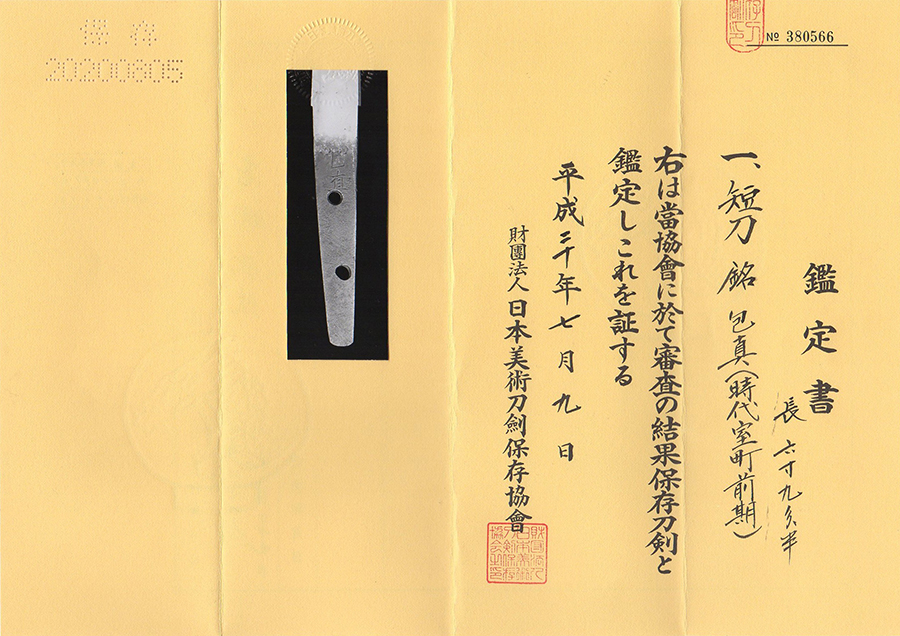 No 380566
鑑定書
一、短刀 銘 包真(時代室町前期)
長 六寸九分半
右は當協會に於て審査の結果保存刀剣と
鑑定しこれを証する
平成二十年七月九日
財團法人日本美術刀劍保存協會
保存
20200805